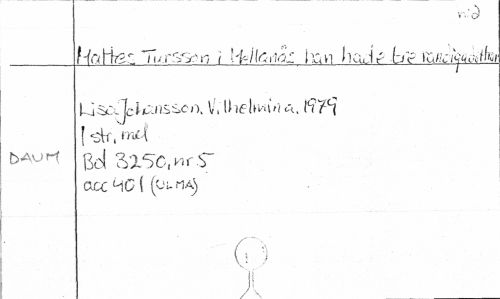 nid
Mattes Tursson i Mellanås, han hade tre
Lisa Johansson, Vilhelmina, 1979
1 str, mel
DAUM
Bd 3250, nr 5
acc 401 (ULMA)